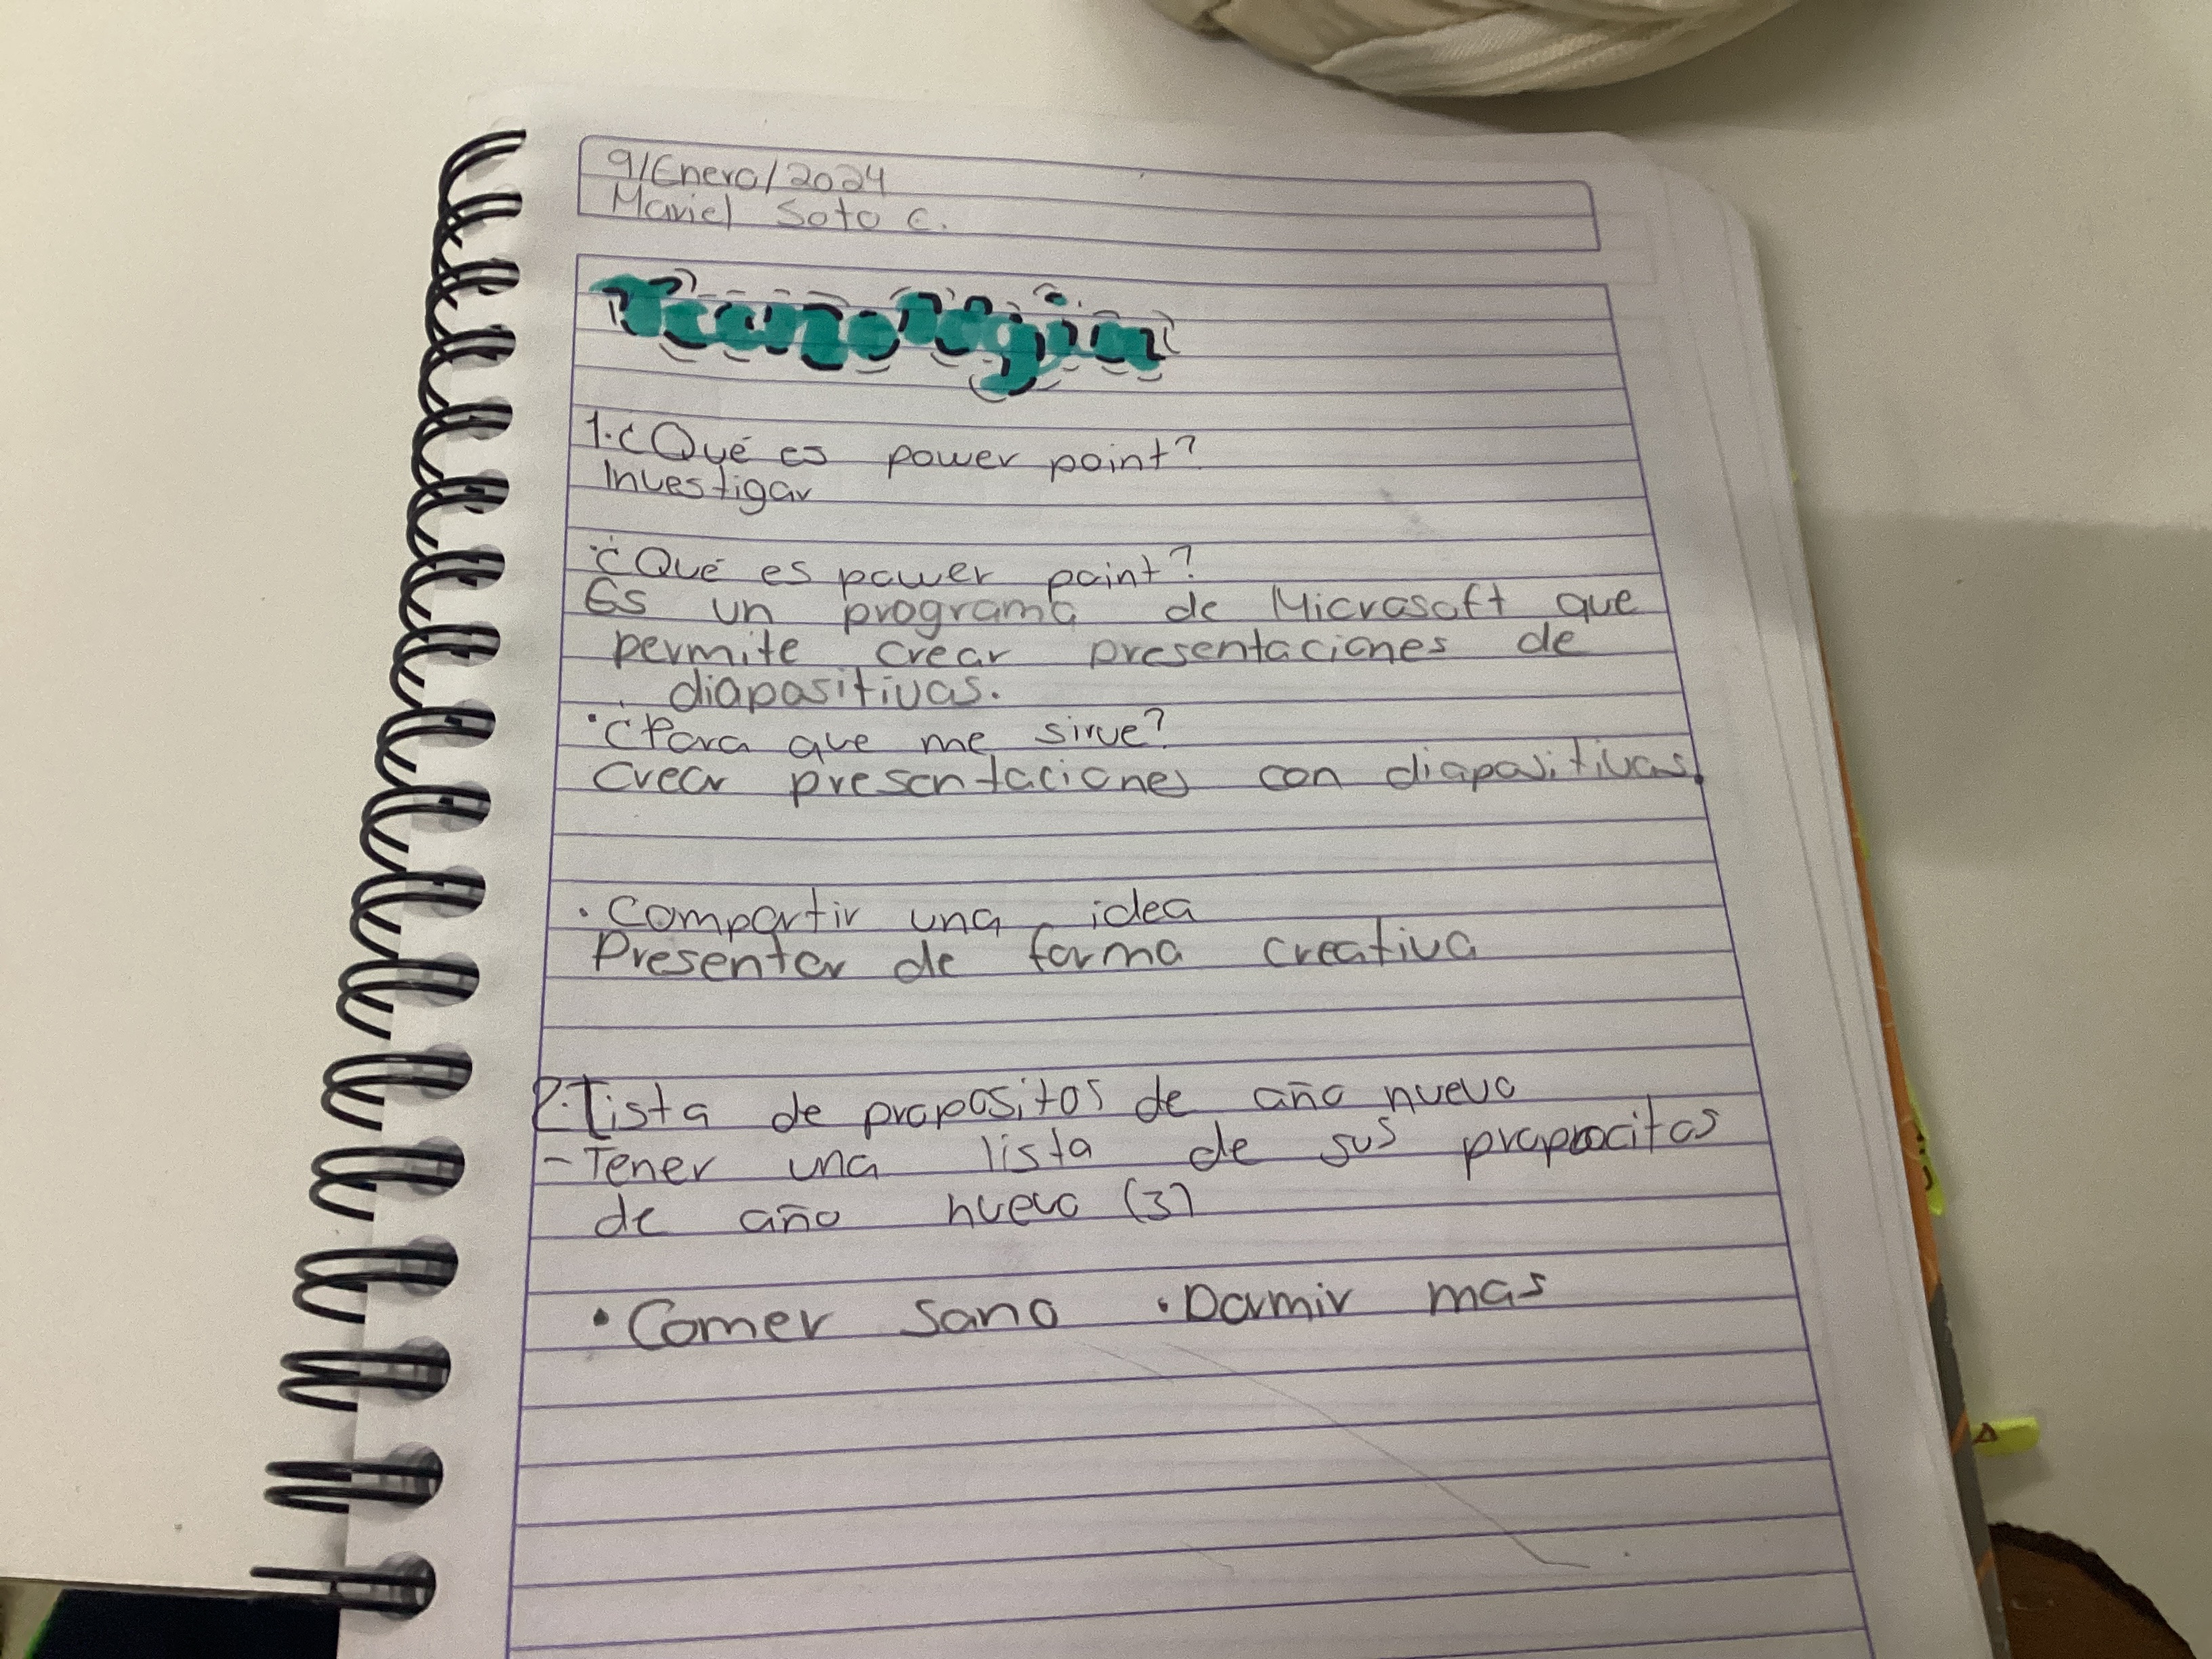 9/Enero/2024
Mariel Soto C.
Tecnología
1.¿Qué es power point?
Investigar
·¿Qué es power point?
Es un programa de Microsoft que
permite crear presentaciones de
diapositivas.
·¿Para que me sirve?
Crear presentaciones con diapositivas.
·Compartir una idea
Presentar de forma creativa
2.Lista de propositos de año nuevo
-Tener una lista de sus propocitos
de año nuevo (3)
·Comer sano ·Dormir mas